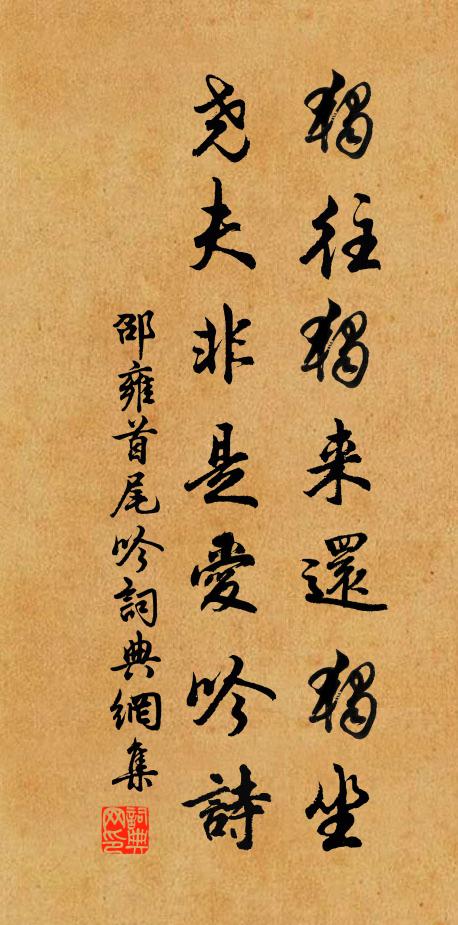 獨往獨来還獨坐
尧夫非是愛吟詩
邵雍首尾吟詞典網集
詞典网印